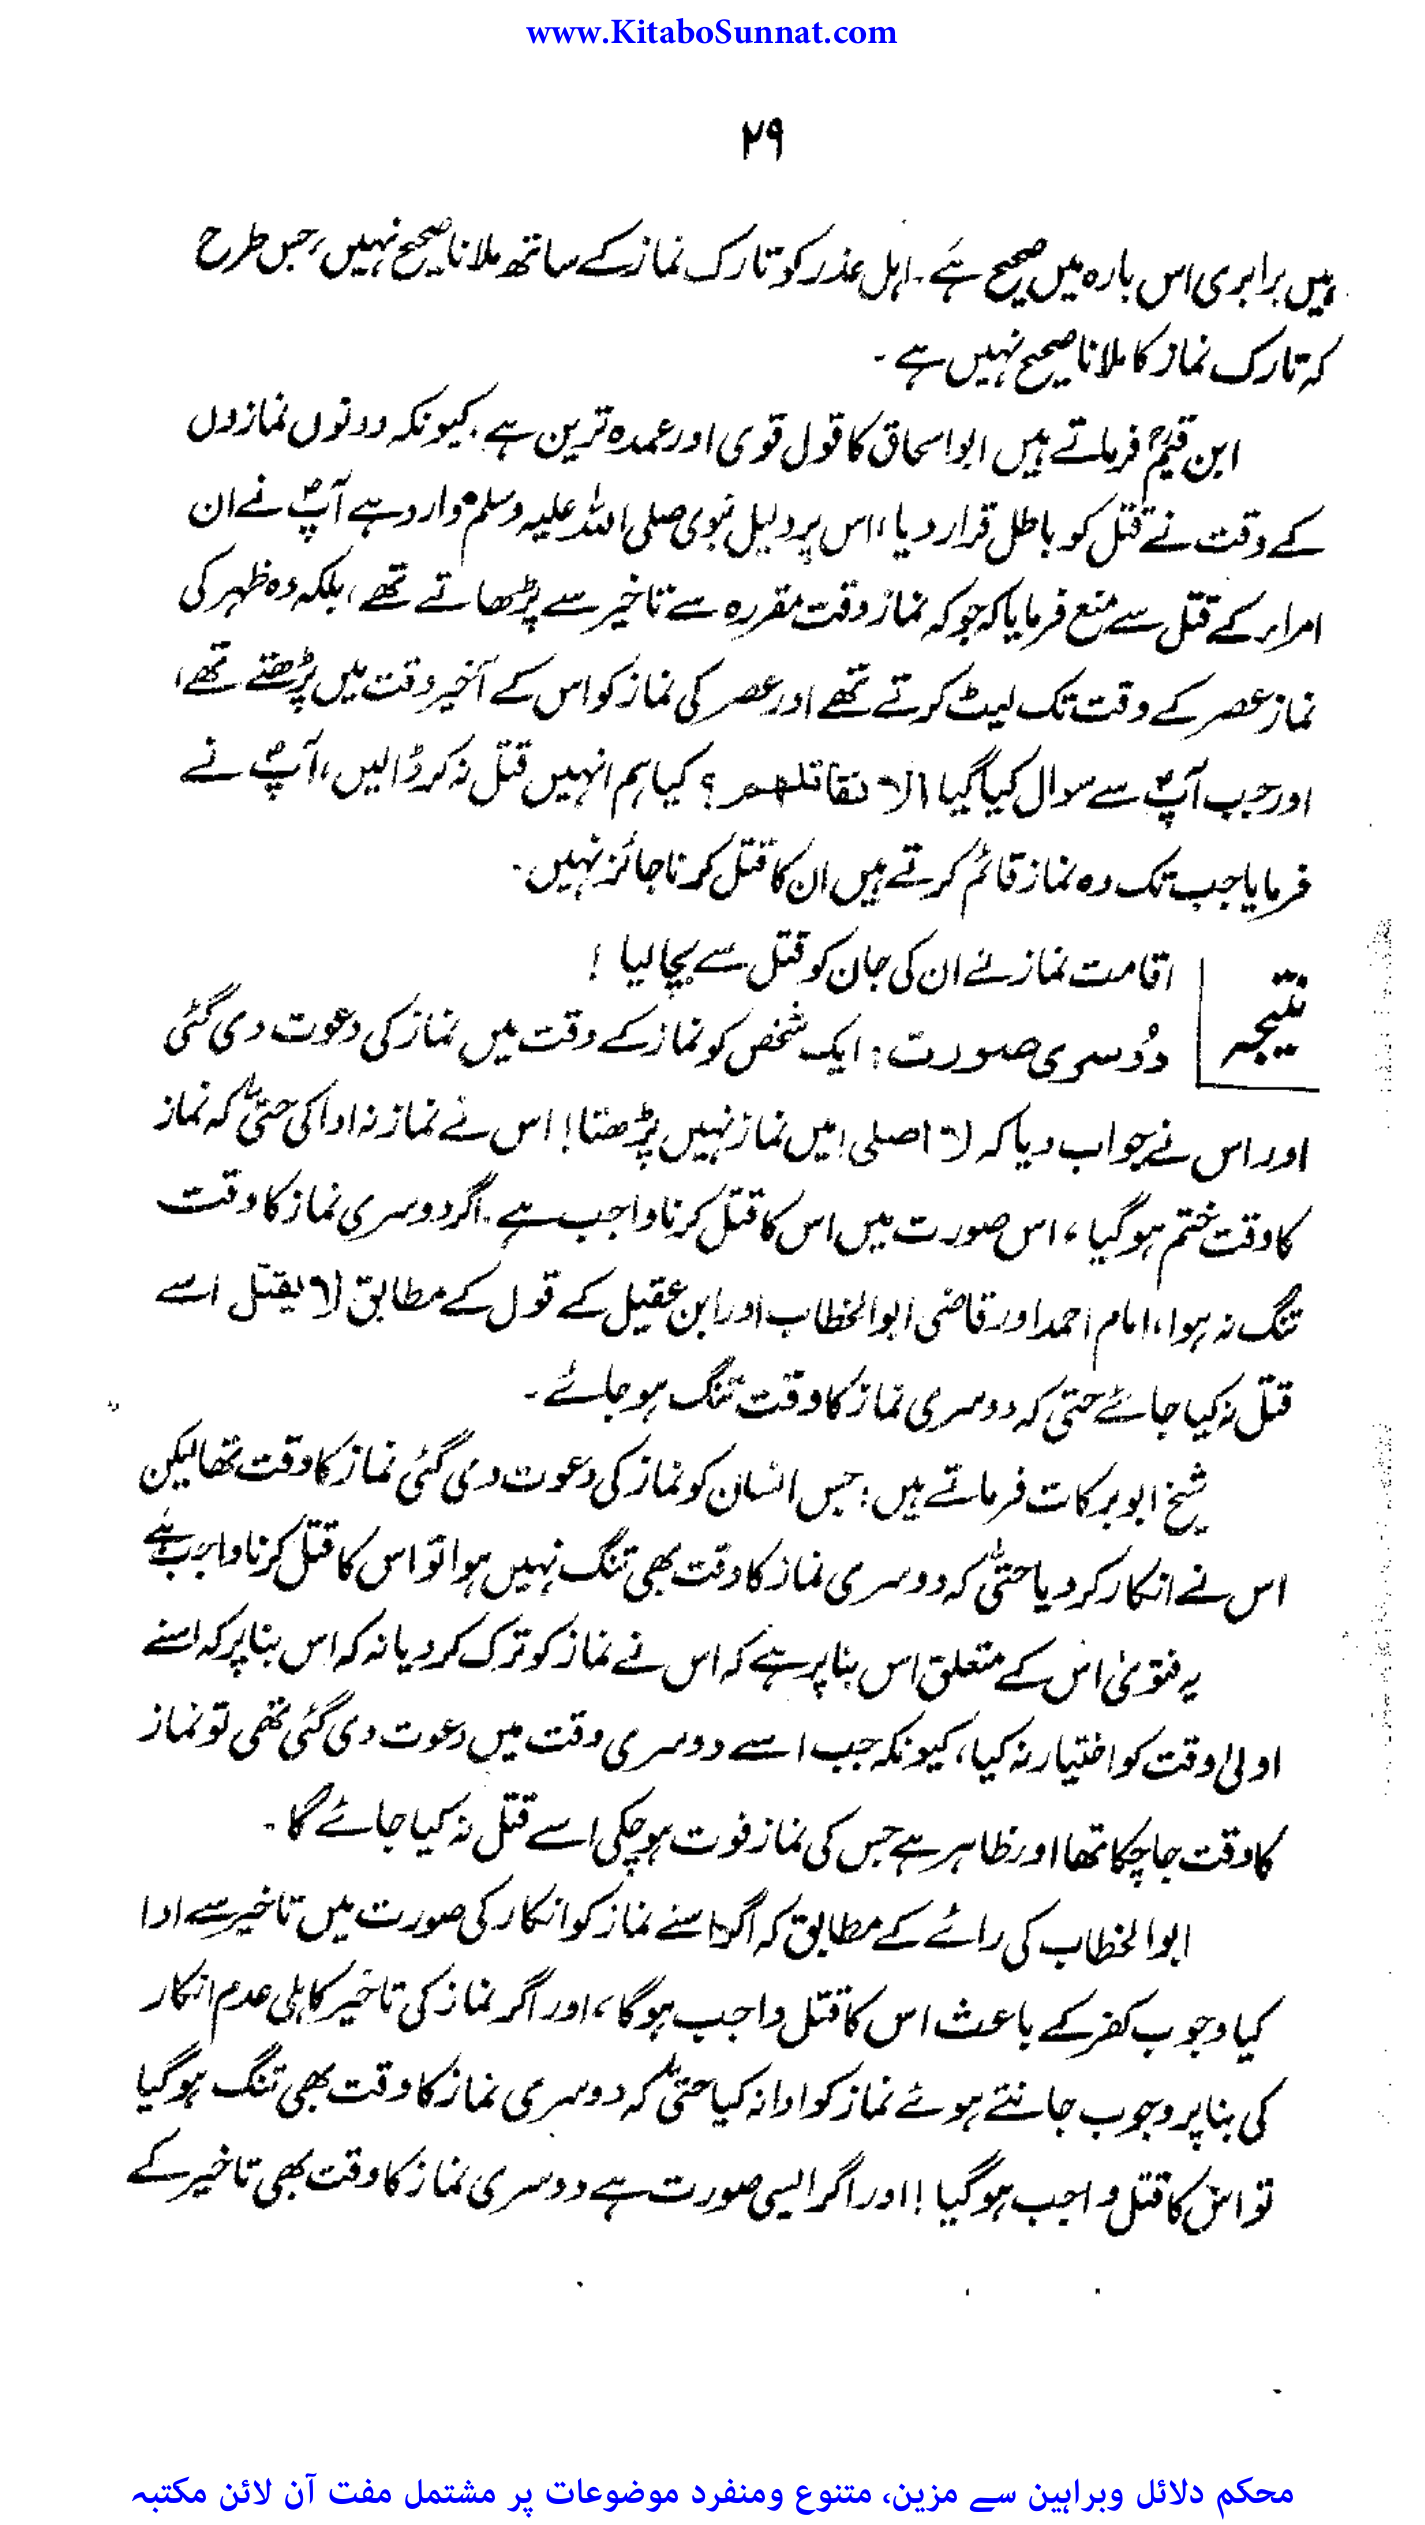 www.KitaboSunnat.com
۲۹
ہیں برابری اس بارہ میں صحیح ہے۔ اہل عذر کو تارک نماز کے ساتھ ملانا صحیح نہیں، جس طرح
کہ تارک نماز کا ملانا صحیح نہیں ہے۔
ابن قیمؒ فرماتے ہیں ابواسحاق کا قول قوی اور عمدہ ترین ہے، کیونکہ دونوں نمازوں
کے وقت نے قتل کو باطل قرار دیا، اس پر دلیل نبوی صلی اللہ علیہ وسلم وارد ہے آپؐ نے ان
امراء کے قتل سے منع فرمایا کہ جو کہ نماز وقت مقررہ سے تاخیر سے پڑھاتے تھے، بلکہ وہ ظہر کی
نماز عصر کے وقت تک لیٹ کرتے تھے اور عصر کی نماز کو اس کے آخیر وقت میں پڑھتے تھے،
اور جب آپؐ سے سوال کیا گیا الا نقاتلھم؟ کیا ہم انہیں قتل نہ کر ڈالیں، آپؐ نے
فرمایا جب تک وہ نماز قائم کرتے ہیں ان کا قتل کرنا جائز نہیں۔
نتیجہ
اقامت نماز نے ان کی جان کو قتل سے بچا لیا !
دُوسری صورت: ایک شخص کو نماز کے وقت میں نماز کی دعوت دی گئی
اور اس نے جواب دیا کہ لا اصلی! میں نماز نہیں پڑھتا! اس نے نماز نہ ادا کی حتیٰ کہ نماز
کا وقت ختم ہو گیا، اس صورت میں اس کا قتل کرنا واجب ہے۔ اگر دوسری نماز کا وقت
تنگ نہ ہوا، امام احمد اور قاضی ابوالخطاب اور ابن عقیل کے قول کے مطابق لا یقتل اسے
قتل نہ کیا جائے حتی کہ دوسری نماز کا وقت تنگ ہو جائے۔
شیخ ابوبرکات فرماتے ہیں: جس انسان کو نماز کی دعوت دی گئی نماز کا وقت تھا لیکن
اس نے انکار کر دیا حتیٰ کہ دوسری نماز کا وقت بھی تنگ نہیں ہوا تو اس کا قتل کرنا واجب ہے
یہ فتویٰ اس کے متعلق اس بنا پر ہے کہ اس نے نماز کو ترک کر دیا نہ کہ اس بنا پر کہ اسنے
اولیٰ وقت کو اختیار نہ کیا، کیونکہ جب اسے دوسری وقت میں دعوت دی گئی تھی تو نماز
کا وقت جا چکا تھا اور ظاہر ہے جس کی نماز فوت ہو چکی اسے قتل نہ کیا جائے گا۔
ابوالخطاب کی رائے کے مطابق کہ اگر اسنے نماز کو انکار کی صورت میں تاخیر سے ادا
کیا وجوب کفر کے باعث اس کا قتل واجب ہوگا، اور اگر نماز کی تاخیر کاہلی عدم انکار
کی بنا پر وجوب جانتے ہوئے نماز کو ادا نہ کیا حتیٰ کہ دوسری نماز کا وقت بھی تنگ ہو گیا
تو اس کا قتل واجب ہو گیا! اور اگر ایسی صورت ہے دوسری نماز کا وقت بھی تاخیر کے
محکم دلائل وبراہین سے مزین، متنوع ومنفرد موضوعات پر مشتمل مفت آن لائن مکتبہ